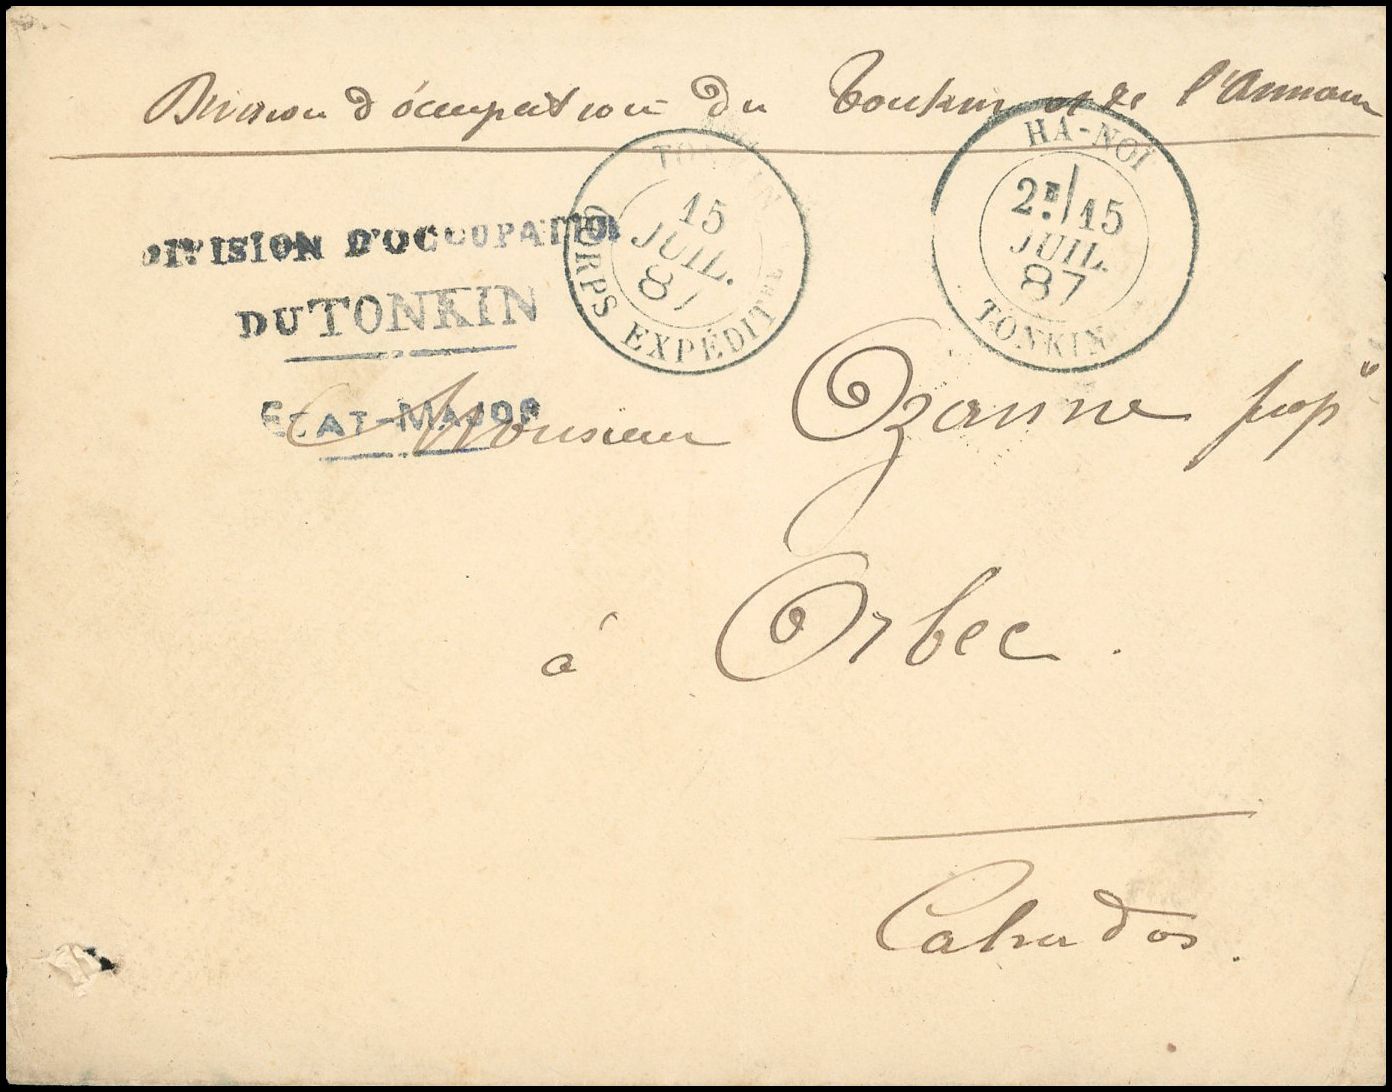 Division d'occupation du Tonkin et de l'Annam
TONKIN
15
JUIL.
87
CORPS EXPÉDITRE
HA-NOÏ
2E/15
JUIL.
87
TONKIN
DIVISION D'OCCUPATION
DU TONKIN
ETAT-MAJOR
Monsieur Ozanne propre
à Orbec.
Calvados.